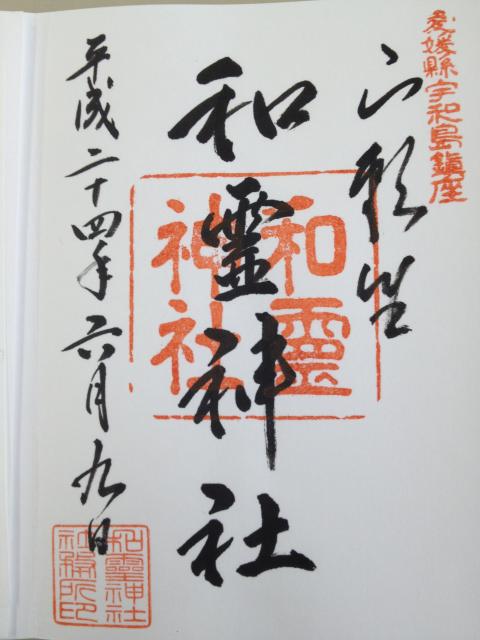 愛媛縣宇和島鎮座
和霊神社
和霊
神社
平成二十四年六月九日
和霊神社
社務所印